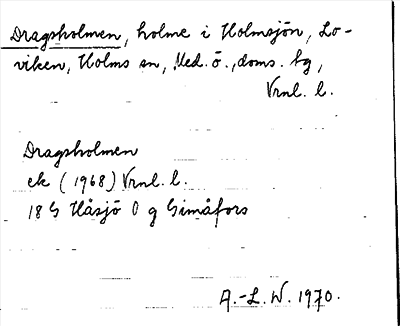 Dragsholmen, holme i Holmsjön, Lo-
viken, Holms sn, Med. ö., doms. hg,
Vrnl. l.
Dragsholmen
ek (1968) Vrnl. l.
18 G Håsjö 0 g Gimåfors
A.-L. W. 1970.